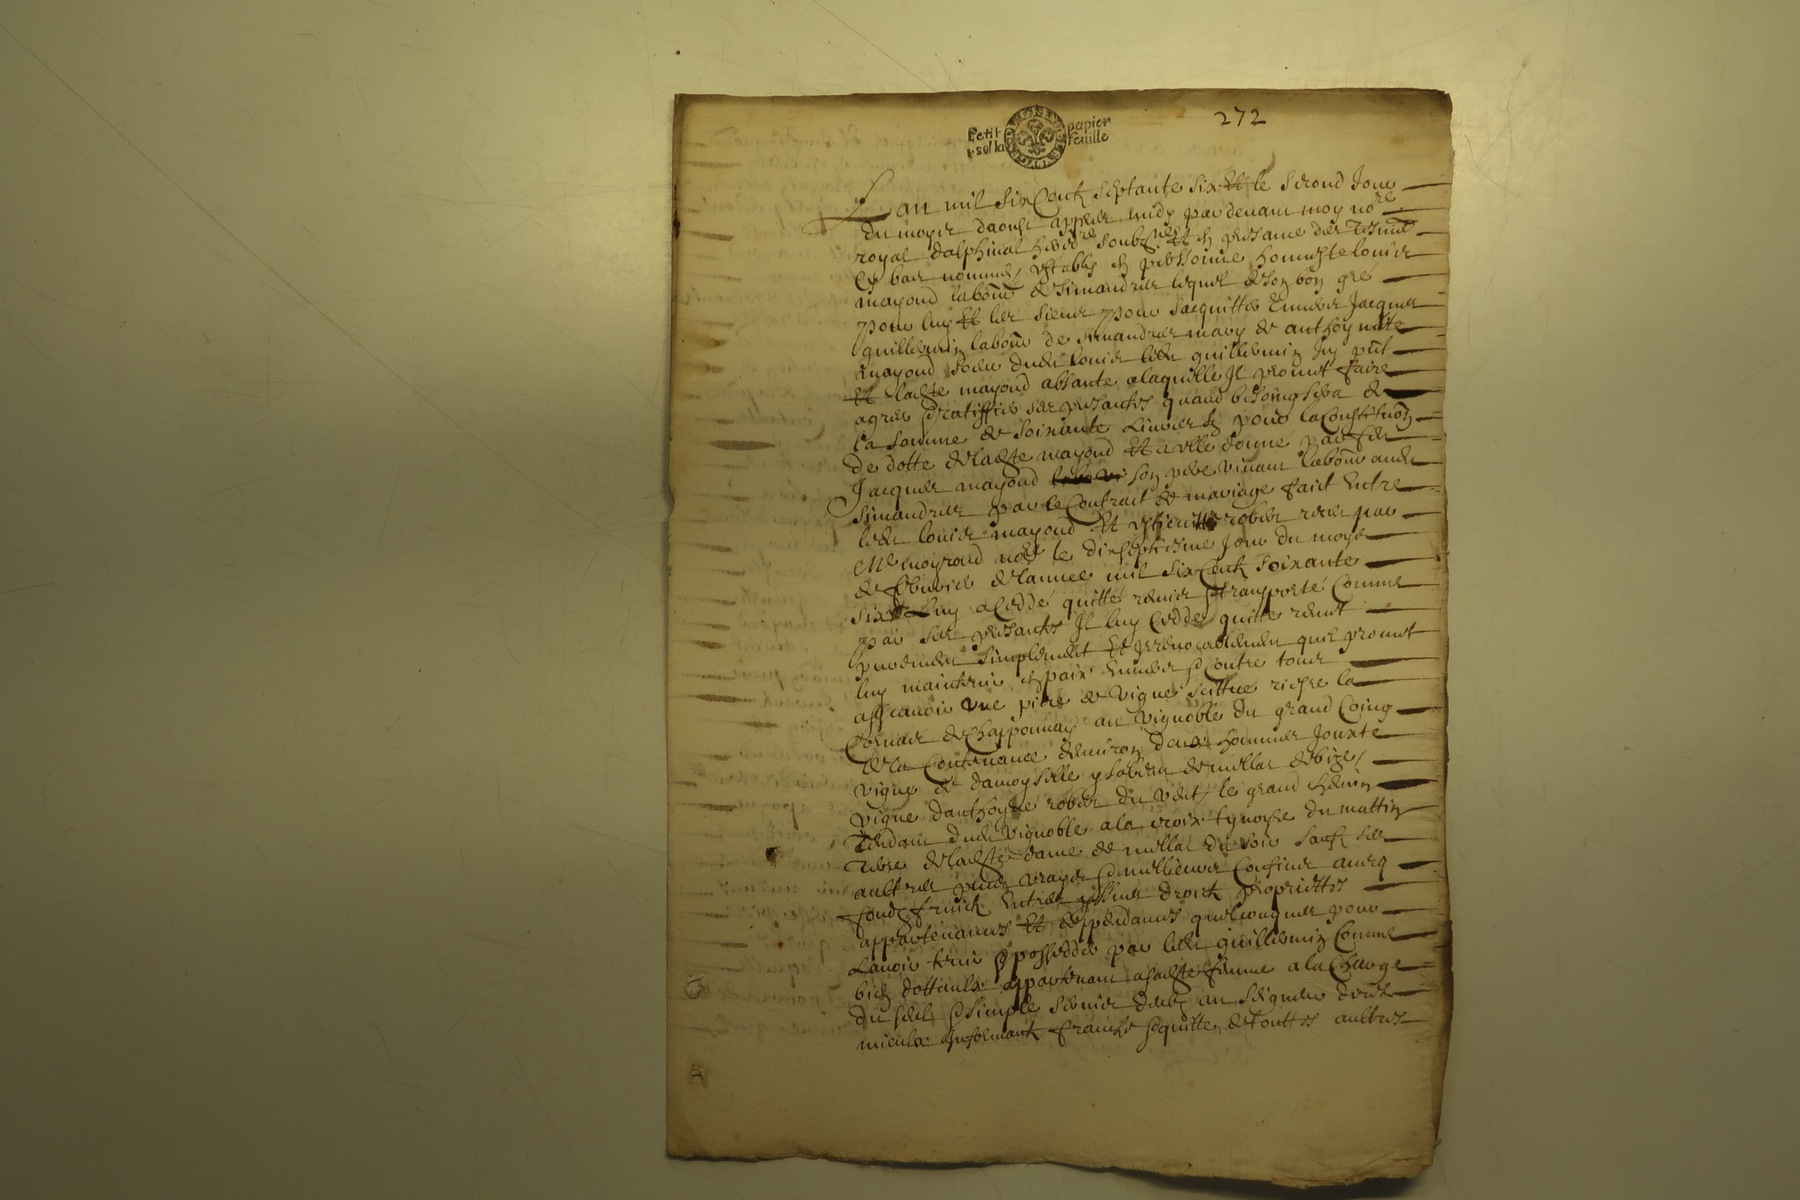 272
Petit papier
sol la feuille
Lan mil six Centz septante six et le second Jour
du moys daoust appres midy par devant moy nore
royal dalphinal heredre soubzne et en presance des tesmn
Cy bas nommes establis en personne honneste louis
mayoud labour de simandres lequel de son bon gre
pour luy et les siens pour sacquitter Envers Jacques
guillermin labour de simandres mary de anthoynette
mayoud soeur dudt louis ledt guillermin Icy pnt
et ladte mayoud absante alaquelle Il promet faire
agreer et ratiffier ses presantes quand besoing sera de
la somme de soixante livres tz pour la Constituon
de dotte de ladte mayoud et a elle donne par feu
Jacques mayoud son pere vivant labour audt
simandres par le Contrait de mariage faict Entre
ledt louis mayoud et rober receu par
Me moyroud nore le dixseptiesme Jour du moys
de febvrier de lannee mil six Centz soixante
six luy a Cedde quitte remis et transporte Comme
par ses presantes Il luy Cedde quitte remet
purement simplement et Irrevocablement quil promet
luy maintenir en paix Envers et Contre tous
assavoir une piece de vigne scittue riere la
Comune de Chapponnay au vignoble du grand Coing
de la Contenance denviron deux hommes Jouxte
vigne de damoyselle ysabeau de millas de bize
vigne danthoyne robert du vent le grand chemin
tendant dudt vignoble a la croix du mattin
terre de ladte dame de millas du soir sauf ses
aultres plus vrayes et meillieures Confines avecq
fondz fruictz Entrees yssues droictz proprietes
appartenances et deppendances quelconques pour
Lavoir tenir et posseder par ledt guillermin Comme
bien dottaulx appartenant a sadte femme a la Charge
du et simple servis deubz au seigneur direct
mieulx Informant franche et quitte de touttes aultres